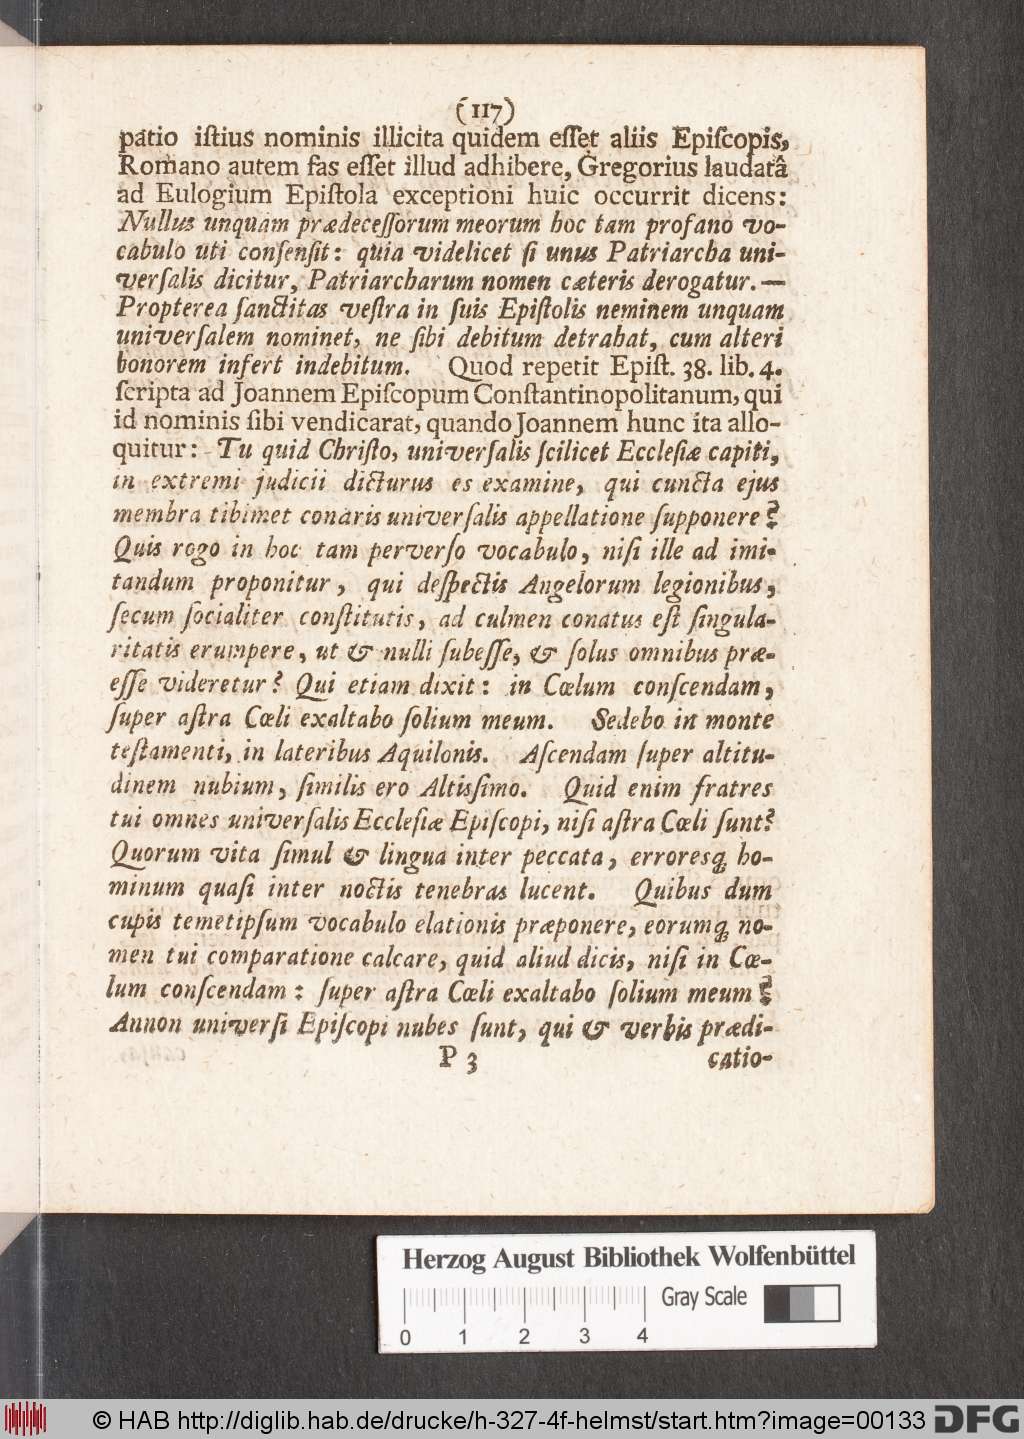 (117)
patio iſtius nominis illicita quidem eſſet aliis Epiſcopis,
Romano autem fas eſſet illud adhibere, Gregorius laudatâ
ad Eulogium Epiſtola exceptioni huic occurrit dicens:
Nullus unquam prædeceſſorum meorum hoc tam profano vo-
cabulo uti conſenſit: quia videlicet ſi unus Patriarcha uni-
verſalis dicitur, Patriarcharum nomen cæteris derogatur. —
Propterea ſanctitas veſtra in ſuis Epiſtolis neminem unquam
univerſalem nominet, ne ſibi debitum detrahat, cum alteri
honorem infert indebitum. Quod repetit Epiſt. 38. lib. 4.
ſcripta ad Joannem Epiſcopum Conſtantinopolitanum, qui
id nominis ſibi vendicarat, quando Joannem hunc ita allo-
quitur: Tu quid Chriſto, univerſalis ſcilicet Eccleſiæ capiti,
in extremi judicii dicturus es examine, qui cuncta ejus
membra tibimet conaris univerſalis appellatione ſupponere?
Quis rogo in hoc tam perverſo vocabulo, niſi ille ad imi-
tandum proponitur, qui deſpectis Angelorum legionibus,
ſecum ſocialiter conſtitutis, ad culmen conatus eſt ſingula-
ritatis erumpere, ut & nulli ſubeſſe, & ſolus omnibus præ-
eſſe videretur? Qui etiam dixit: in Cœlum conſcendam,
ſuper aſtra Cœli exaltabo ſolium meum. Sedebo in monte
teſtamenti, in lateribus Aquilonis. Aſcendam ſuper altitu-
dinem nubium, ſimilis ero Altiſſimo. Quid enim fratres
tui omnes univerſalis Eccleſiæ Epiſcopi, niſi aſtra Cœli ſunt?
Quorum vita ſimul & lingua inter peccata, erroresq́; ho-
minum quaſi inter noctis tenebras lucent. Quibus dum
cupis temetipſum vocabulo elationis præponere, eorumq́; no-
men tui comparatione calcare, quid aliud dicis, niſi in Cœ-
lum conſcendam: ſuper aſtra Cœli exaltabo ſolium meum?
Annon univerſi Epiſcopi nubes ſunt, qui & verbis prædi-
P 3 catio-
Herzog August Bibliothek Wolfenbüttel
Gray Scale
0 1 2 3 4
© HAB http://diglib.hab.de/drucke/h-327-4f-helmst/start.htm?image=00133
DFG